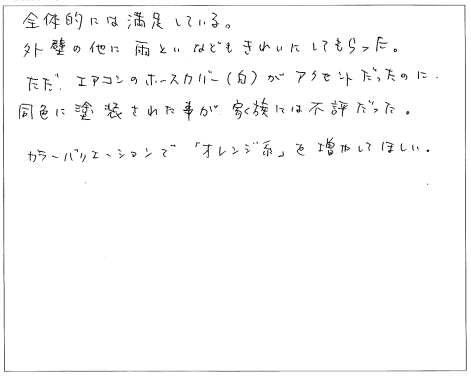 全体的には満足している。
外壁の他に雨といなどもきれいにしてもらった。
ただ、エアコンのホースカバー(白)がアクセントだったのに、
同色に塗装された事が家族には不評だった。
カラーバリエーションで「オレンジ系」を増やしてほしい。